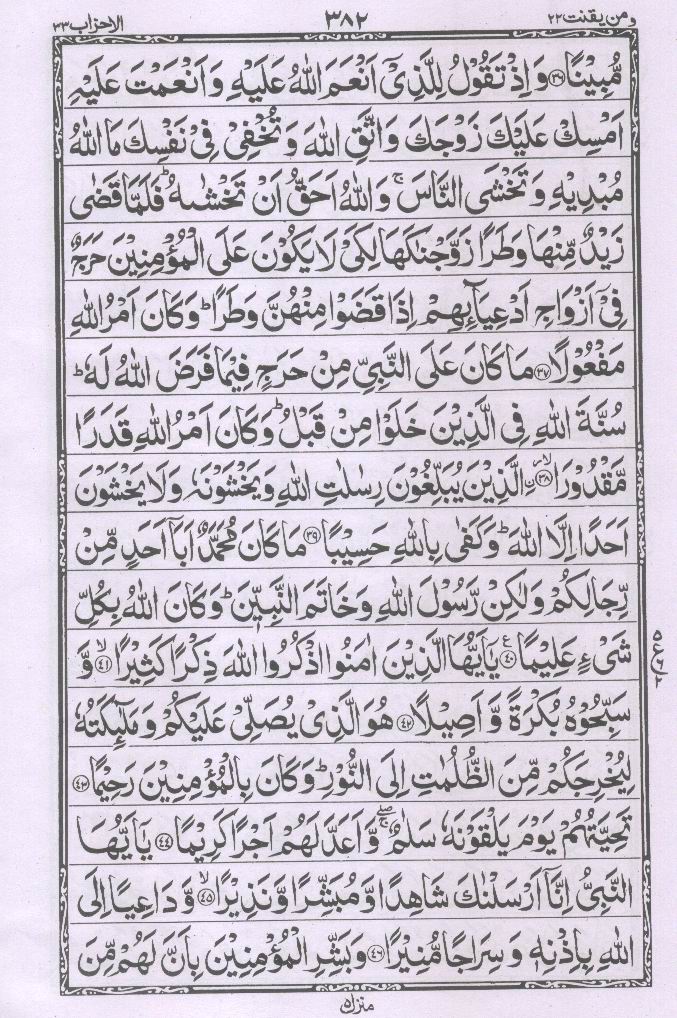 ومن يقنت ٢٢ ٣٨٢ الاحزاب ٣٣
مُّبِيْنًا ﴿٣٦﴾ وَاِذْ تَقُوْلُ لِلَّذِيْۤ اَنْعَمَ اللّٰهُ عَلَيْهِ وَاَنْعَمْتَ عَلَيْهِ
اَمْسِكْ عَلَيْكَ زَوْجَكَ وَاتَّقِ اللّٰهَ وَتُخْفِيْ فِيْ نَفْسِكَ مَا اللّٰهُ
مُبْدِيْهِ وَتَخْشَى النَّاسَ ۚ وَاللّٰهُ اَحَقُّ اَنْ تَخْشٰىهُ ؕ فَلَمَّا قَضٰى
زَيْدٌ مِّنْهَا وَطَرًا زَوَّجْنٰكَهَا لِكَيْ لَا يَكُوْنَ عَلَى الْمُؤْمِنِيْنَ حَرَجٌ
فِيْۤ اَزْوَاجِ اَدْعِيَآئِهِمْ اِذَا قَضَوْا مِنْهُنَّ وَطَرًا ؕ وَكَانَ اَمْرُ اللّٰهِ
مَفْعُوْلًا ﴿٣٧﴾ مَا كَانَ عَلَى النَّبِيِّ مِنْ حَرَجٍ فِيْمَا فَرَضَ اللّٰهُ لَهٗ ؕ
سُنَّةَ اللّٰهِ فِي الَّذِيْنَ خَلَوْا مِنْ قَبْلُ ؕ وَكَانَ اَمْرُ اللّٰهِ قَدَرًا
مَّقْدُوْرًا ﴿٣٨﴾ ۙ الَّذِيْنَ يُبَلِّغُوْنَ رِسٰلٰتِ اللّٰهِ وَيَخْشَوْنَهٗ وَلَا يَخْشَوْنَ
اَحَدًا اِلَّا اللّٰهَ ؕ وَكَفٰى بِاللّٰهِ حَسِيْبًا ﴿٣٩﴾ مَا كَانَ مُحَمَّدٌ اَبَاۤ اَحَدٍ مِّنْ
رِّجَالِكُمْ وَلٰكِنْ رَّسُوْلَ اللّٰهِ وَخَاتَمَ النَّبِيّٖنَ ؕ وَكَانَ اللّٰهُ بِكُلِّ
شَيْءٍ عَلِيْمًا ﴿٤٠﴾ ع يٰۤاَيُّهَا الَّذِيْنَ اٰمَنُوا اذْكُرُوا اللّٰهَ ذِكْرًا كَثِيْرًا ﴿٤١﴾ ۙ وَّ
سَبِّحُوْهُ بُكْرَةً وَّاَصِيْلًا ﴿٤٢﴾ هُوَ الَّذِيْ يُصَلِّيْ عَلَيْكُمْ وَمَلٰٓئِكَتُهٗ
لِيُخْرِجَكُمْ مِّنَ الظُّلُمٰتِ اِلَى النُّوْرِ ؕ وَكَانَ بِالْمُؤْمِنِيْنَ رَحِيْمًا ﴿٤٣﴾
تَحِيَّتُهُمْ يَوْمَ يَلْقَوْنَهٗ سَلٰمٌ ۖۚ وَّاَعَدَّ لَهُمْ اَجْرًا كَرِيْمًا ﴿٤٤﴾ يٰۤاَيُّهَا
النَّبِيُّ اِنَّاۤ اَرْسَلْنٰكَ شَاهِدًا وَّمُبَشِّرًا وَّنَذِيْرًا ﴿٤٥﴾ ۙ وَّدَاعِيًا اِلَى
اللّٰهِ بِاِذْنِهٖ وَسِرَاجًا مُّنِيْرًا ﴿٤٦﴾ وَبَشِّرِ الْمُؤْمِنِيْنَ بِاَنَّ لَهُمْ مِّنَ
منزل ٥